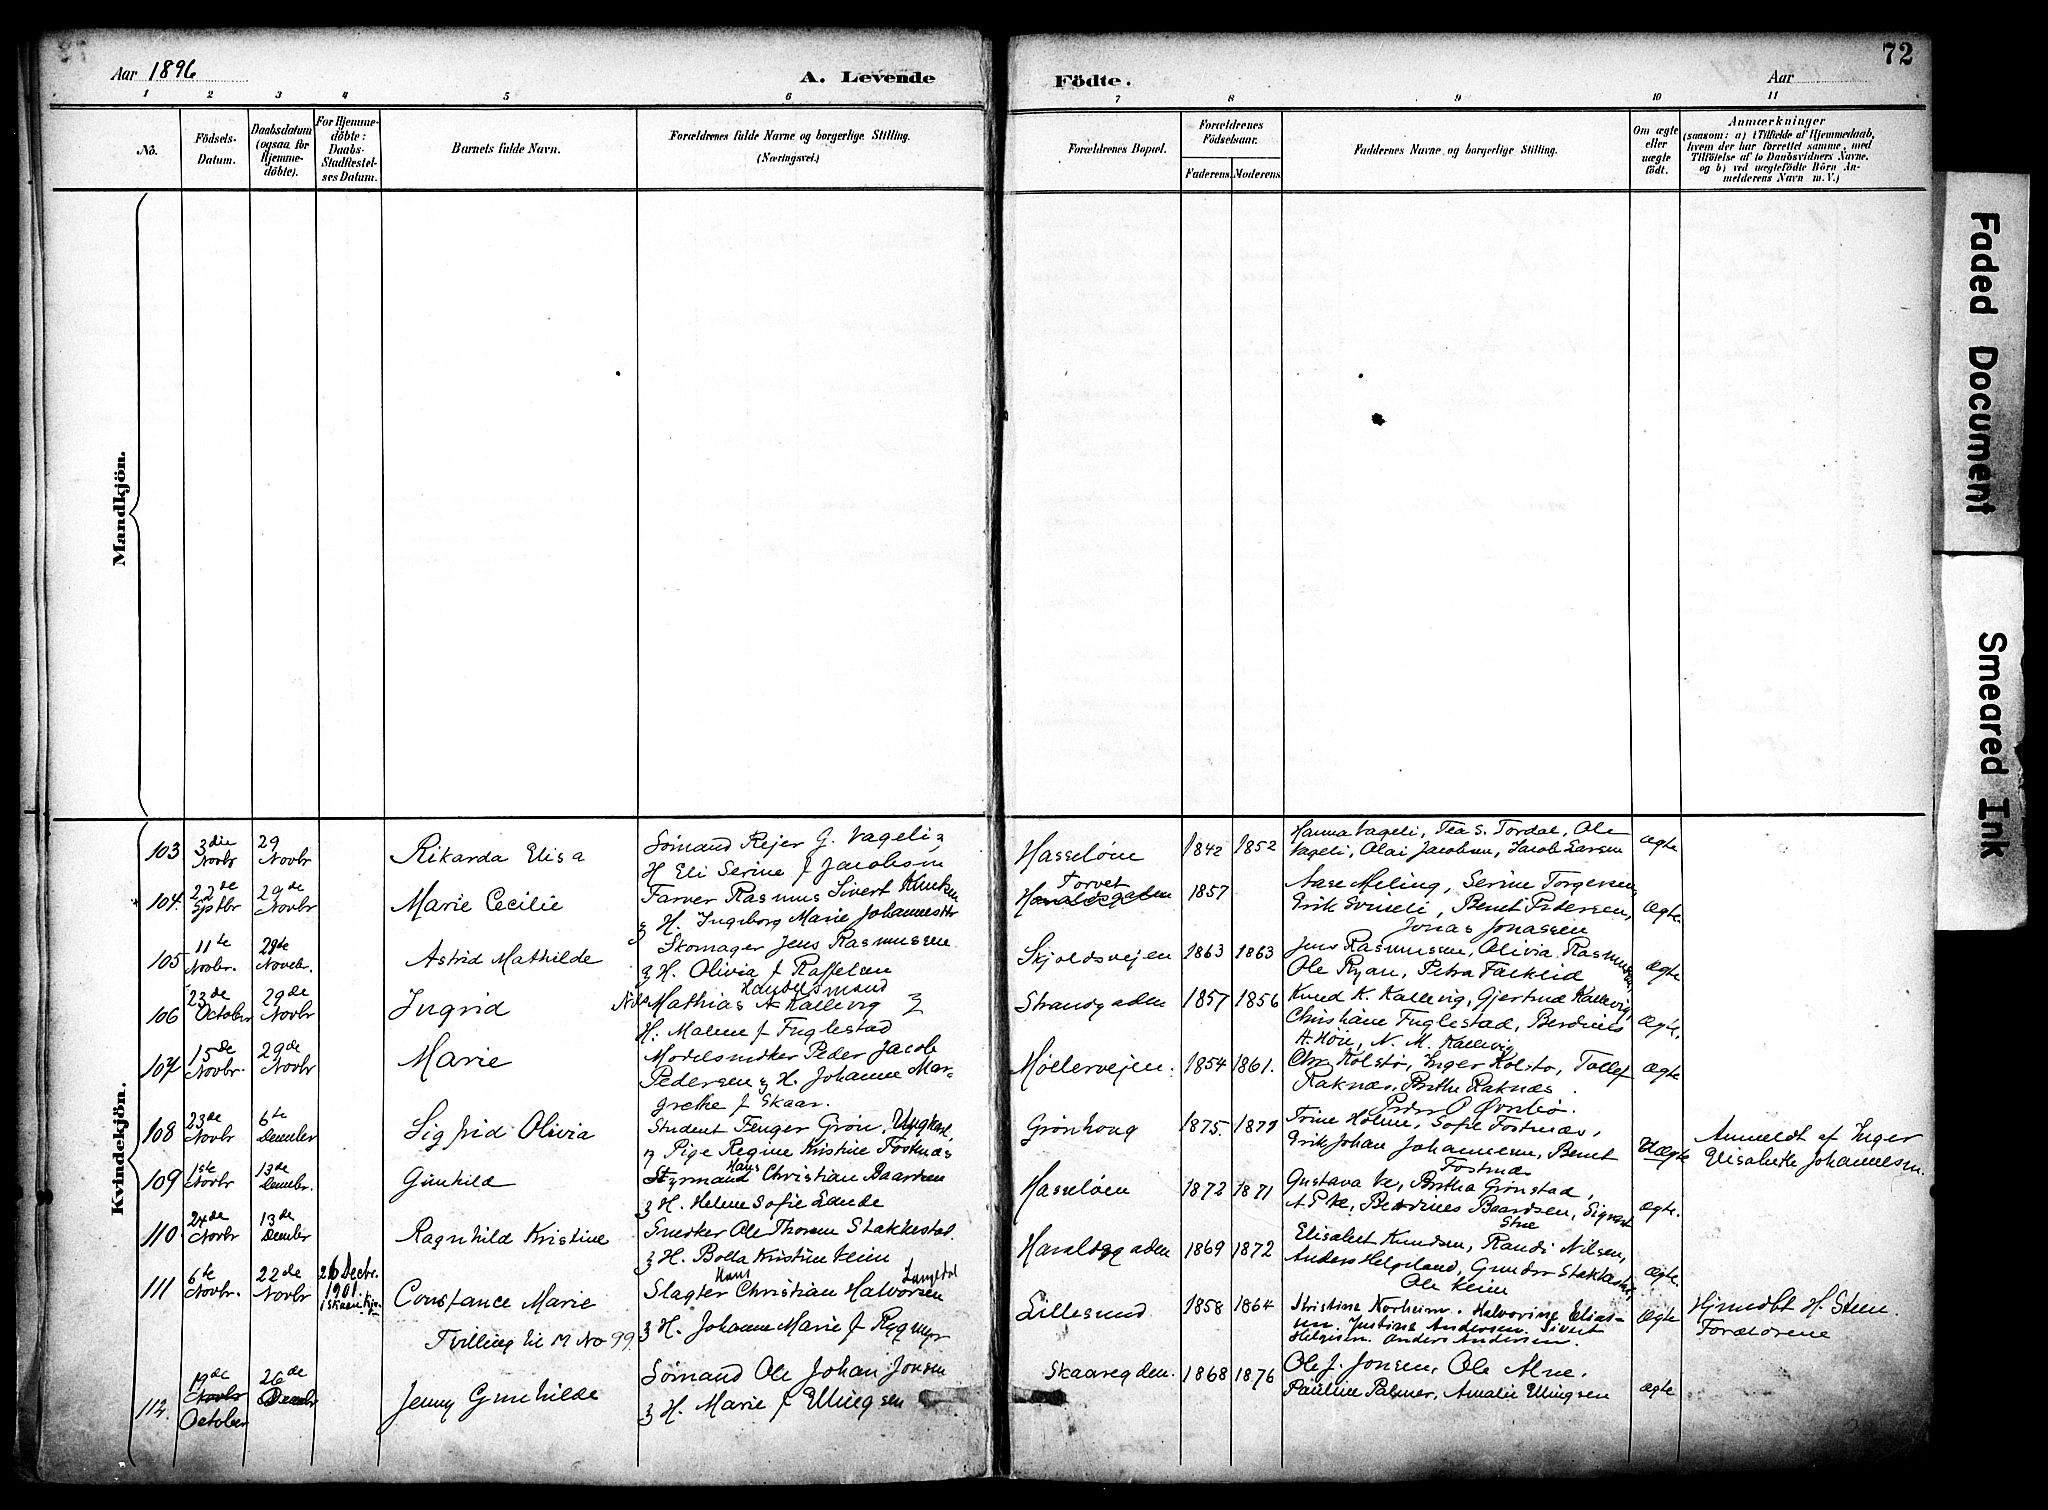 72
Aar 1896
A. Levende
Födte.
Aar
1 2 3 4 5 6 7 8 9 10 11
No.
Födsels-Datum.
Daabsdatum (ogsaa for Hjemme-döbte).
For Hjemme-döbte: Daabs-Stadfæstel-ses Datum.
Barnets fulde Navn.
Forældrenes fulde Navne og borgerlige Stilling. (Næringsvei.)
Forældrenes Bopæl.
Forældrenes Födselsaar.
Faderens. Moderens.
Faddernes Navne og borgerlige Stilling.
Om ægte eller uægte födt.
Anmærkninger
(saasom: a) i Tilfælde af Hjemmedaab,
hvem der har forrettet samme, med
Tilföielse af to Daabsvidners Navne,
og b) ved uægtefödte Börn An-
melderens Navn m. V.)
Mandkjön.
Kvindekjön.
103 3die Novbr 29 Novbr
Rikarda Elisa
Sømand Rejer G. Vageli &
H Eli Serine f Jacobsen
Hasseløen 1842 1852
Hanna Vageli, Tea S. Tordal, Ole
Vageli, Olai Jacobsen, Jacob Larsen
Ægte
104. 22de Sptbr 29de Novbr
Marie Cecilie
Farver Rasmus Sivert Knutsen
& H. Ingeborg Marie Johannesdtr
Torvet
Haraldsgaden 1857
Aase Meling, Serine Torgersen,
Erik Svineli, Benet Pedersen,
Jonas Jonassen
Ægte
105 11te Novbr. 29te Novebr.
Astrid Mathilde
Skomager Jens Rasmussen
& H. Olivia f Raffelsen
Skjoldsvejen 1863 1863
Jens Rasmussen, Olivia Rasmussen,
Ole Ryan, Petra Færkeid
Ægte
106 23de October 29de Novbr
Ingrid
Handelsmand
Mathias N Kallevig &
H. Malene f Fuglestad
Strandgaden 1857 1856
Knud K. Kallevig, Gjertrud Kallevig,
Christiane Fuglestad, Berdines
H. Høie, N. M. Kallevig
Ægte.
107 15de Novbr. 29de Novbr
Marie
Modelsnedker Peder Jacob
Pedersen & H. Johanne Mar-
grethe f Skaar.
Møllervejen. 1854 1861.
Chr. Kolstø, Inger Kolstø, Tollef
Raknæs, Berthe Raknæs.
Peder P Øvrebø.
Ægte
108 23de Novbr 6te Dcember
Sigfrid Olivia
Student Fenger Grøn, Ungkarl,
& Pige Regine Kristine Fosnæs
Grønhoug 1875. 1871
Trine Holme, Sofie Fostnæs,
Erik Johan Johannesen, Benet
Fostnæs
Uægte
Anmeldt af Inger
Elisabeth Johannesen.
109 1ste Novbr 13de Dcember.
Gunhild
Styrmand Hans Christian Baardsen
& H. Helene Sofie Lande
Hasseløen 1872 1871
Gustava Ve, Bertha Grønstad,
A P Ve, Berdines Baardsen, Sigvart
Stue
Ægte.
110 24de Novbr 13de Dcmbr
Ragnhild Kristine
Snedker Ole Thorsen Stakkestad.
& H. Bolla Kristine Veim
Haraldsgaden 1869 1872
Elisabet Knudsen, Randi Nilsen,
Anders Helgeland, Gunder Stakkestad,
Ole Veim
Ægte.
111 6te Novbr. 22de Novbr
26 Decbr. 1901 i Skaare Kjr.
Constance Marie
Tvilling til M No 99
Slagter Hans Christian Halvorsen Langedal
& H. Johanne Marie f Rygmyr
Lillesund 1858 1864
Kristine Norheim. Halvorine Elias-
sen. Justine Andersen. Sivert
Helgesen. Anders Andersen.
Ægte
Hjmdbt H. Steen.
Forældrene
112. 19de Novbr October 26de Dcmbr
Jenny Gunhilde
Sømand Ole Johan Jonsen
& H. Marie f Ellingsen
Skaaregden. 1868 1876
Ole J. Jonsen, Ole Alne.
Pauline Palmer, Amalie Ellingsen
Ægte
Faded Document
Smeared Ink